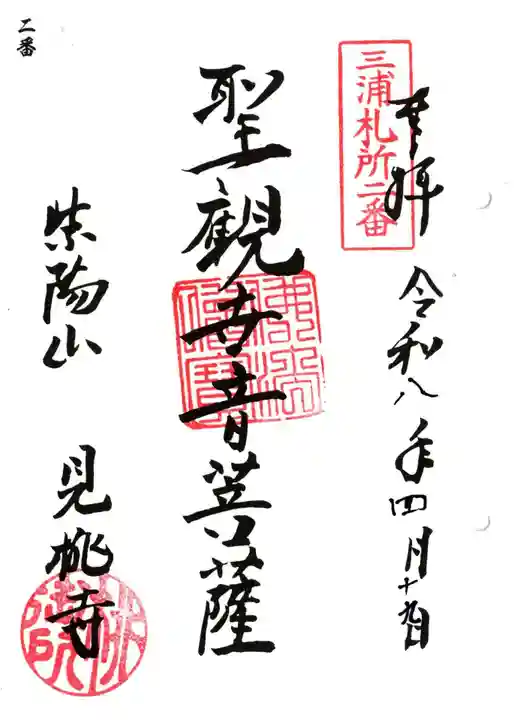 奉拝
三浦札所二番
令和八年四月十九日
聖観世音菩薩
佛法僧寶
紫陽山 見桃寺
二番